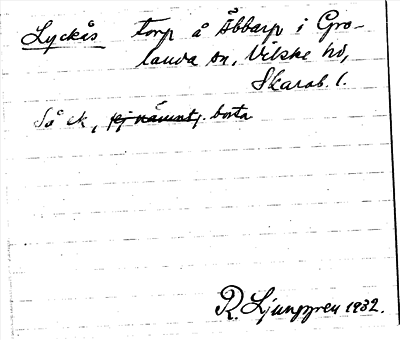 Lyckås torp å Äbbarp i Gro-
landa sn, Vilske hd,
Skarab. l.
Så ek, ej nämnt, borta
R. Ljunggren 1932.